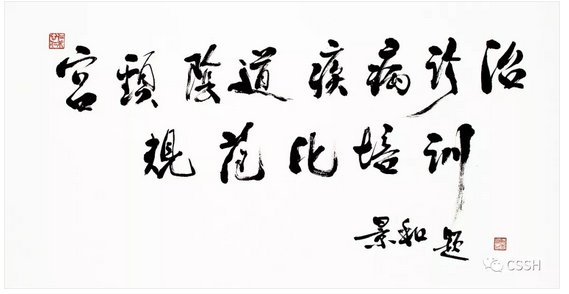 宫頸陰道疾病诊治
規范化培训
景和题
CSSH